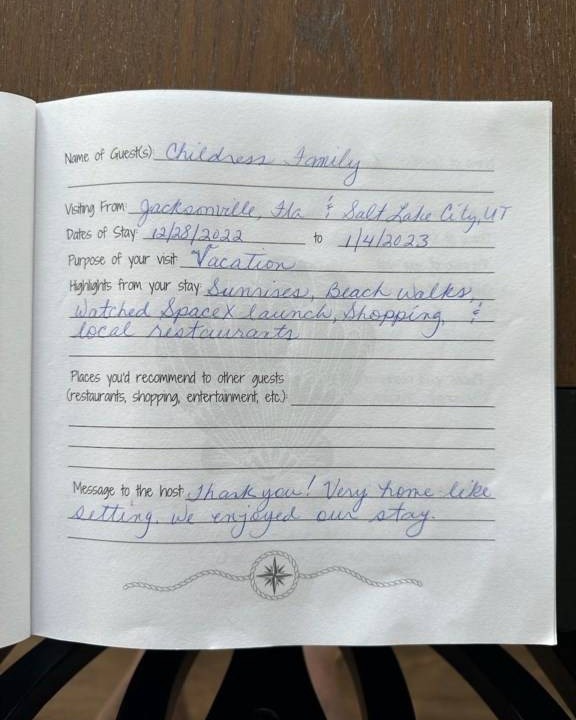 Name of Guest(s): Childress Family
Visiting From: Jacksonville, Fla & Salt Lake City, UT
Dates of Stay: 12/28/2022 to 1/4/2023
Purpose of your visit: Vacation
Highlights from your stay: Sunrises, Beach walks,
Watched SpaceX launch, Shopping, &
local restaurants
Places you'd recommend to other guests
(restaurants, shopping, entertainment, etc.):
Message to the host: Thank you! Very home like
setting. We enjoyed our stay.